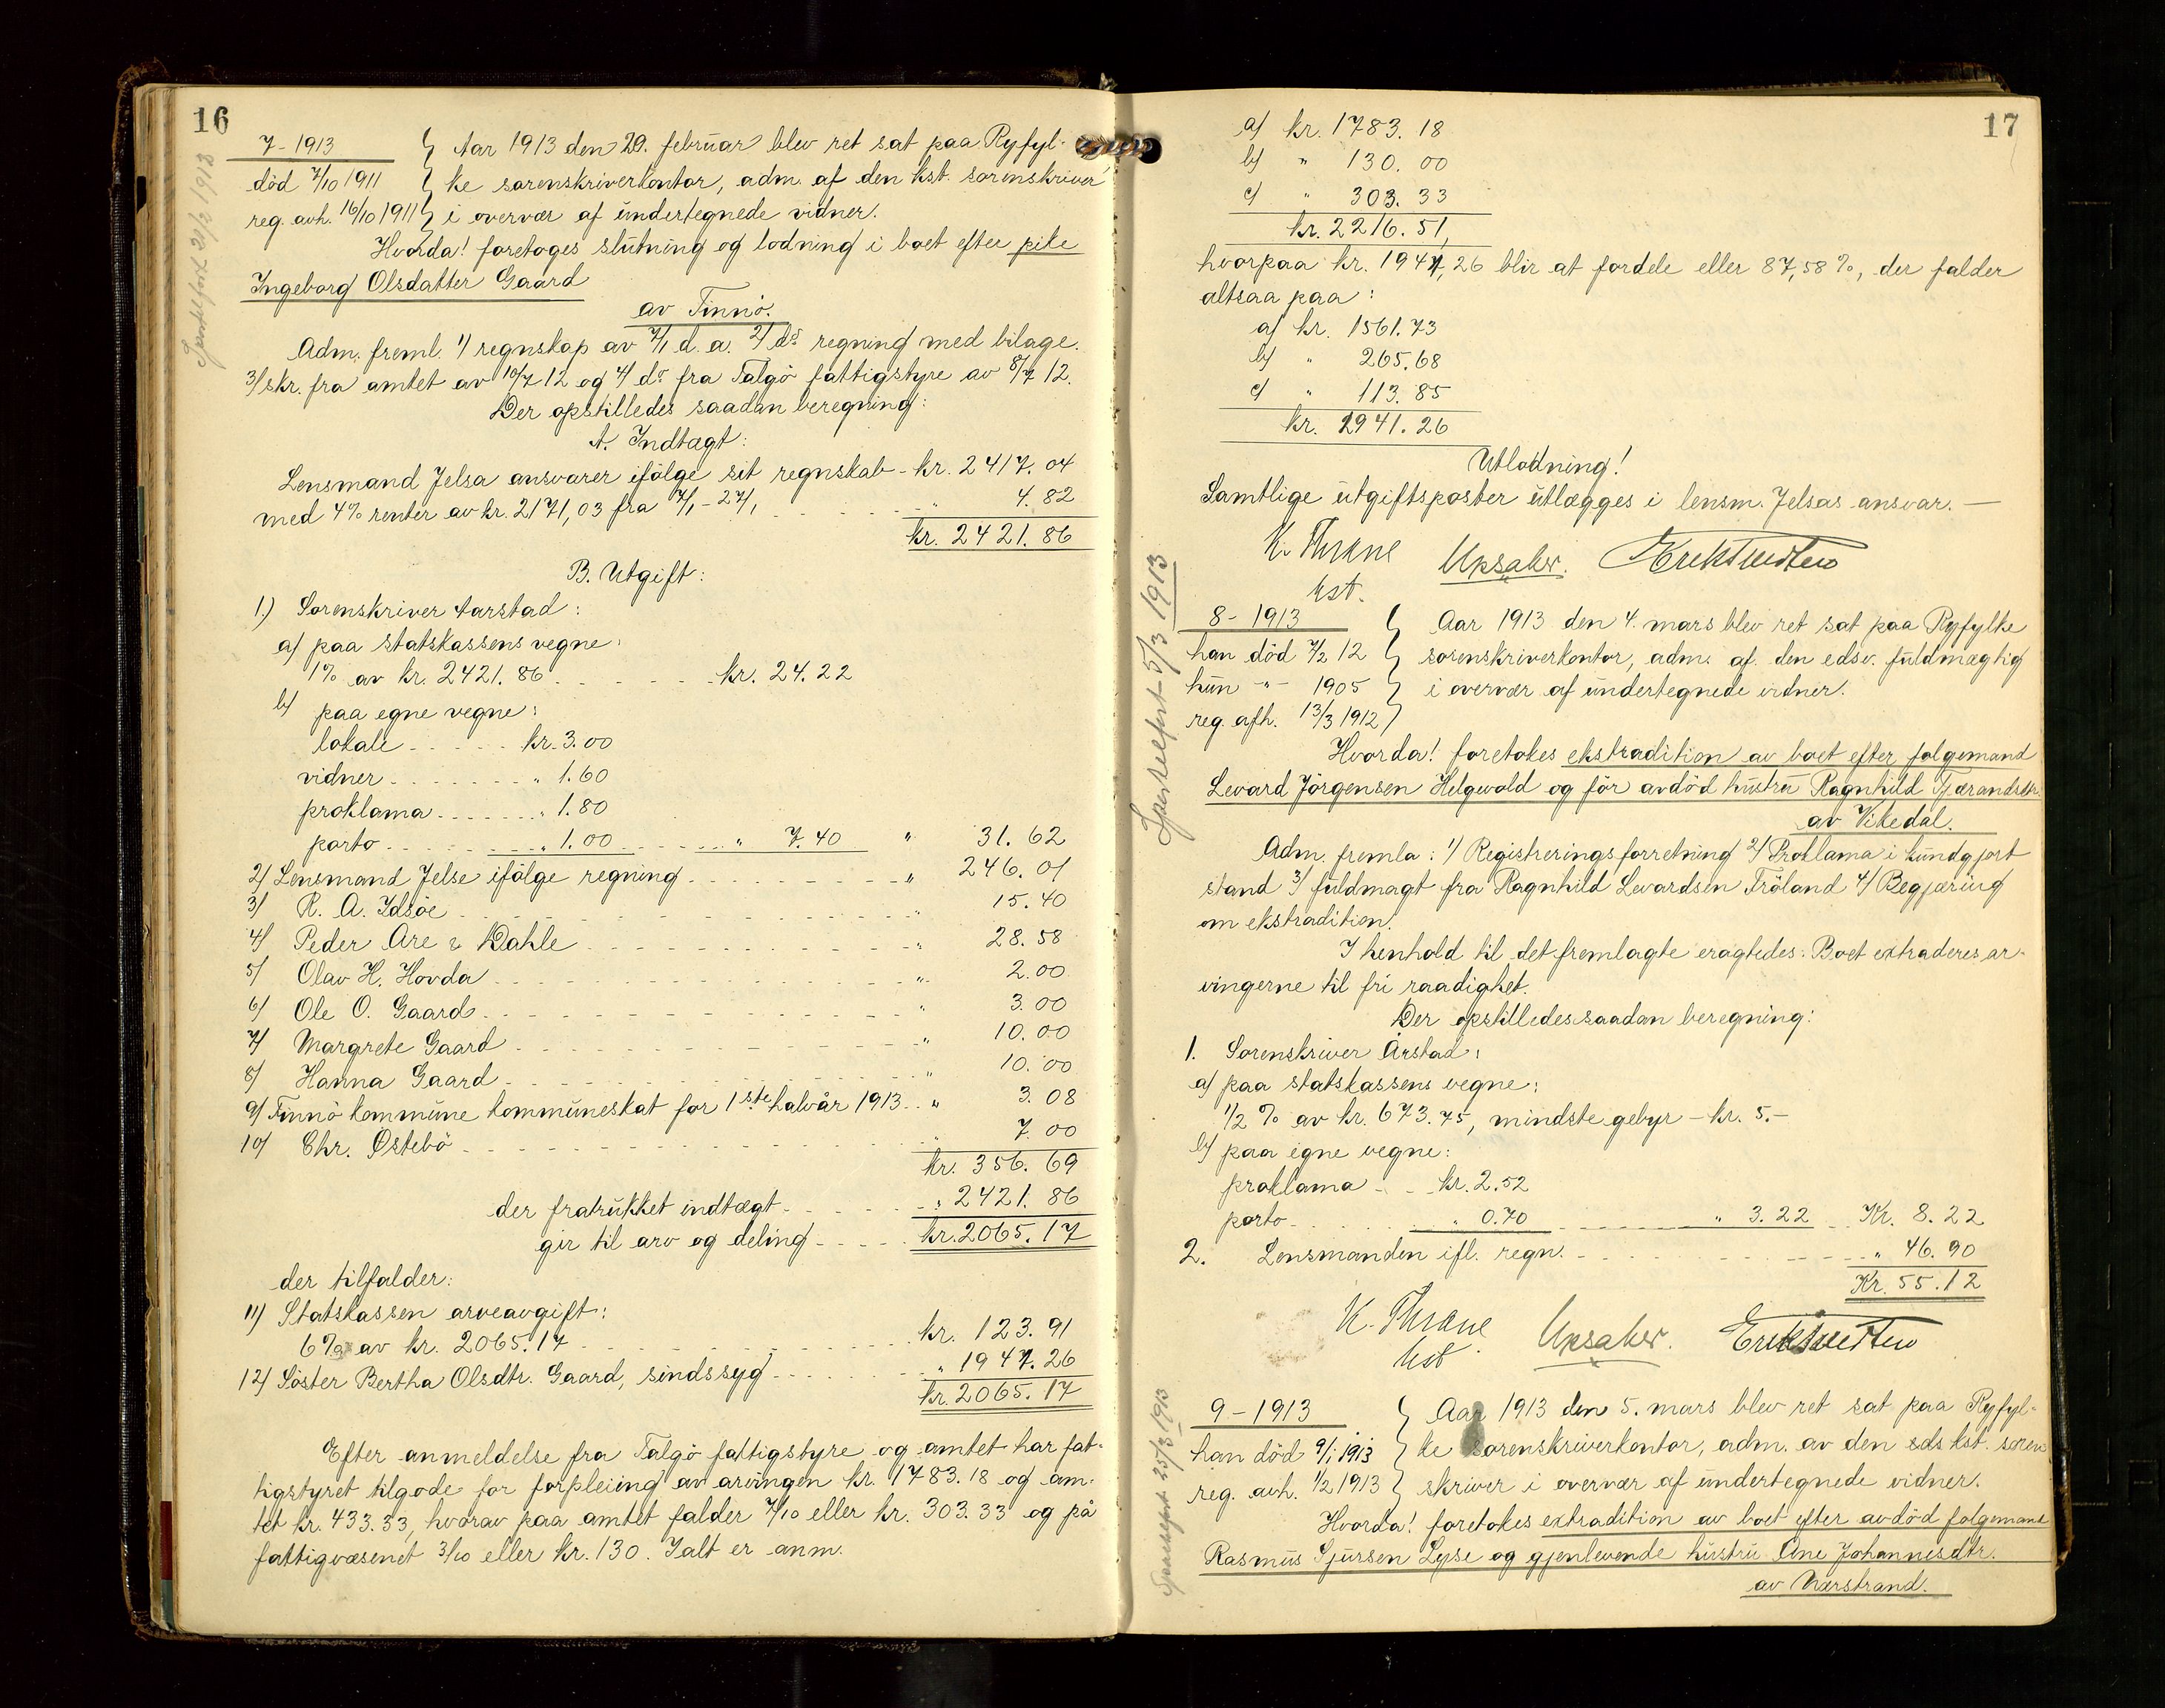 16
7-1913
død 7/10 1911
reg. avh. 16/10 1911
Aar 1913 den 20. februar blev ret sat paa Ryfyl-
ke sorenskriverkontor, adm. af den kst. sorenskriver
i overvær af undertegnede vidner.
Hvorda! foretoges slutning og lodning i boet efter pike
Ingeborg Olsdatter Gaard
av Finnö.
Adm. freml. 1/ regnskap av 7/1 d.a. 2/ do regning med bilage.
3/ skr. fra amtet av 10/7 12 og 4/ do fra Talgö fattigstyre av 8/7 12.
Der opstilledes saadan beregning:
A. Indtægt:
Lensmand Jelsa ansvarer ifölge sit regnskab - kr. 2417.04
med 4% renter av kr. 2171,03 fra 7/1 - 27/1 " 4.82
kr. 2421.86
B. Utgift:
1.) Sorenskriver Aarstad:
a/ paa statskassens vegne:
1% av kr. 2421.86 kr. 24.22
b/ paa egne vegne:
lokale kr. 3.00
vidner " 1.60
proklama " 1.80
porto " 1.00 " 7.40 " 31.62
2/ Lensmand Jelse ifölge regning " 246.01
3/ R. A. Idsöe " 15.40
4/ Peder Are & Dahle " 28.58
5/ Olav H. Hovda " 2.00
6/ Ole O. Gaard " 3.00
7/ Margrete Gaard " 10.00
8/ Hanna Gaard " 10.00
9/ Finnö kommune kommuneskat for 1ste halvår 1913 " 3.08
10/ Chr. Östebö " 7.00
kr. 356.69
der fratrukket indtægt " 2421.86
gir til arv og deling kr. 2065.17
der tilfalder:
11) Statskassen arveavgift:
6% av kr. 2065.17 kr. 123.91
12) Söster Bertha Olsdtr. Gaard, sindssyg " 1941.26
kr. 2065.17
Efter anmeldelse fra Talgö fattigstyre og amtet har fat-
tigstyret tilgode for forpleiing av arvingen kr. 1783.18 og am-
tet kr. 433.33, hvorav paa amtet falder 7/10 eller kr. 303.33 og på
fattigvæsenet 3/10 eller kr. 130. Ialt er anm.
17
a/ kr. 1783.18
b/ " 130.00
c/ " 303.33
kr. 2216.51,
hvorpaa kr. 1941,26 blir at fordele eller 87,58%, der falder
altsaa paa:
a/ kr. 1561.73
b/ " 265.68
c/ " 113.85
kr. 1941.26
Utlodning!
Samtlige utgiftsposter utlægges i lensm. Jelsas ansvar. —
K. Thrane
kst.
Upsaker.
8-1913
han död 7/2 12
hun -"- 1905
reg. afh. 13/3 1912
5/3 1913
Aar 1913 den 4. mars blev ret sat paa Ryfylke
sorenskriverkontor, adm. af den edsv. fuldmægtig
i overvær af undertegnede vidner.
Hvorda! foretokes ekstradition av boet efter folgemand
Levard Jörgensen Helgevold og för avdöd hustru Ragnhild
av Vikedal.
Adm. fremla: 1/ Registreringsforretning 2/ Proklama i kundgjort
stand 3/ fuldmagt fra Ragnhild Levardsen Fröland 4/ Begjæring
om ekstradition.
I henhold til det fremlagte eragtedes: Boet extraderes ar-
vingerne til fri raadighet.
Der opstilledes saadan beregning:
1. Sorenskriver Årstad:
a/ paa statskassens vegne:
1/2 % av kr. 673.75, mindste gebyr - kr. 5.-
b/ paa egne vegne:
proklama kr. 2.52
porto " 0.70 " 3.22 Kr. 8.22
2. Lensmanden ifl. regn. " 46.90
Kr. 55.12
K. Thrane
kst
Upsaker.
9-1913
han död 9/1 1913
reg. avh. 1/2 1913
25/3 1913
Aar 1913 den 5. mars blev ret sat paa Ryfyl-
ke sorenskriverkontor, adm. av den eds kst. soren
skriver i overvær af undertegnede vidner.
Hvorda! foretokes extradition av boet efter avdöd folgemand
Rasmus Sjursen Lyse og gjenlevende hustru Ane Johannesdtr.
av Nærstrand.